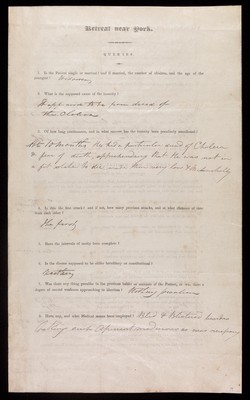 Retreat near York.
QUERIES
1. Is the Patient single or married? had if married, the number of children, and the age of the
youngest?
2. What is the supposed cause of the insanity?
Supposed to be from dread of
the Cholera
3. Of how long continuance, and in what manner has the insanity been peculiarly manifested?
10 Months. He had a particular dread of Cholera
& fear of death, apprehending that He was not in
a fit state to die, very low &
4. Is this the first attack? and if not, how many previous attacks, and at what distance of time
from each other?
The first
5. Have the intervals of sanity been complete?
6. Is the disease supposed to be either hereditary or constitutional?
7. Was there any thing peculiar in the previous habits or pursuits of the Patient, or was there a
degree of mental weakness approaching to idiotism? Nothing peculiar
8. Have any, and what Medical means been employed? Bled & Blistered
medicines